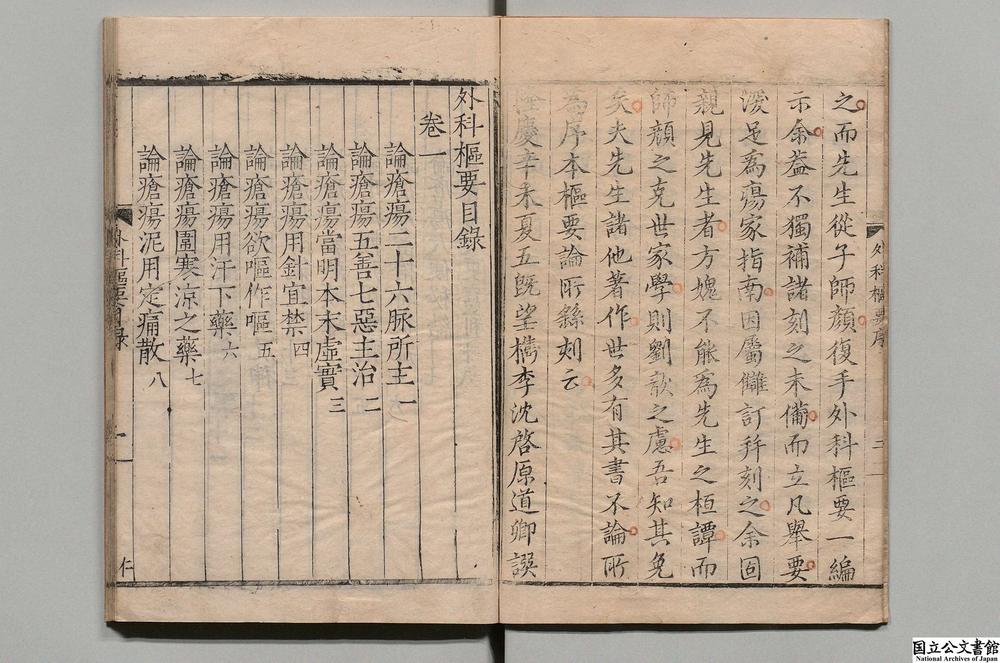 之而先生從子師顏復手外科樞要一編
示余葢不獨補諸刻之未備而立凡舉要
深足為瘍家指南因屬讎訂幷刻之余固
親見先生者方媿不能為先生之桓譚而
師顏之克世家學則劉歆之慮吾知其免
矣夫先生諸他著作世多有其書不論所
為序本樞要論所繇刻云
隆慶辛未夏五既望檇李沈啓原道卿譔
外科樞要序
二
外科樞要目錄
卷一
論瘡瘍二十六脉所主一
論瘡瘍五善七惡主治二
論瘡瘍當明本末虛實三
論瘡瘍用針宜禁四
論瘡瘍欲嘔作嘔五
論瘡瘍用汗下藥六
論瘡瘍圍寒涼之藥七
論瘡瘍泥用定痛散八
外科樞要目錄
一
仁
国立公文書館
National Archives of Japan